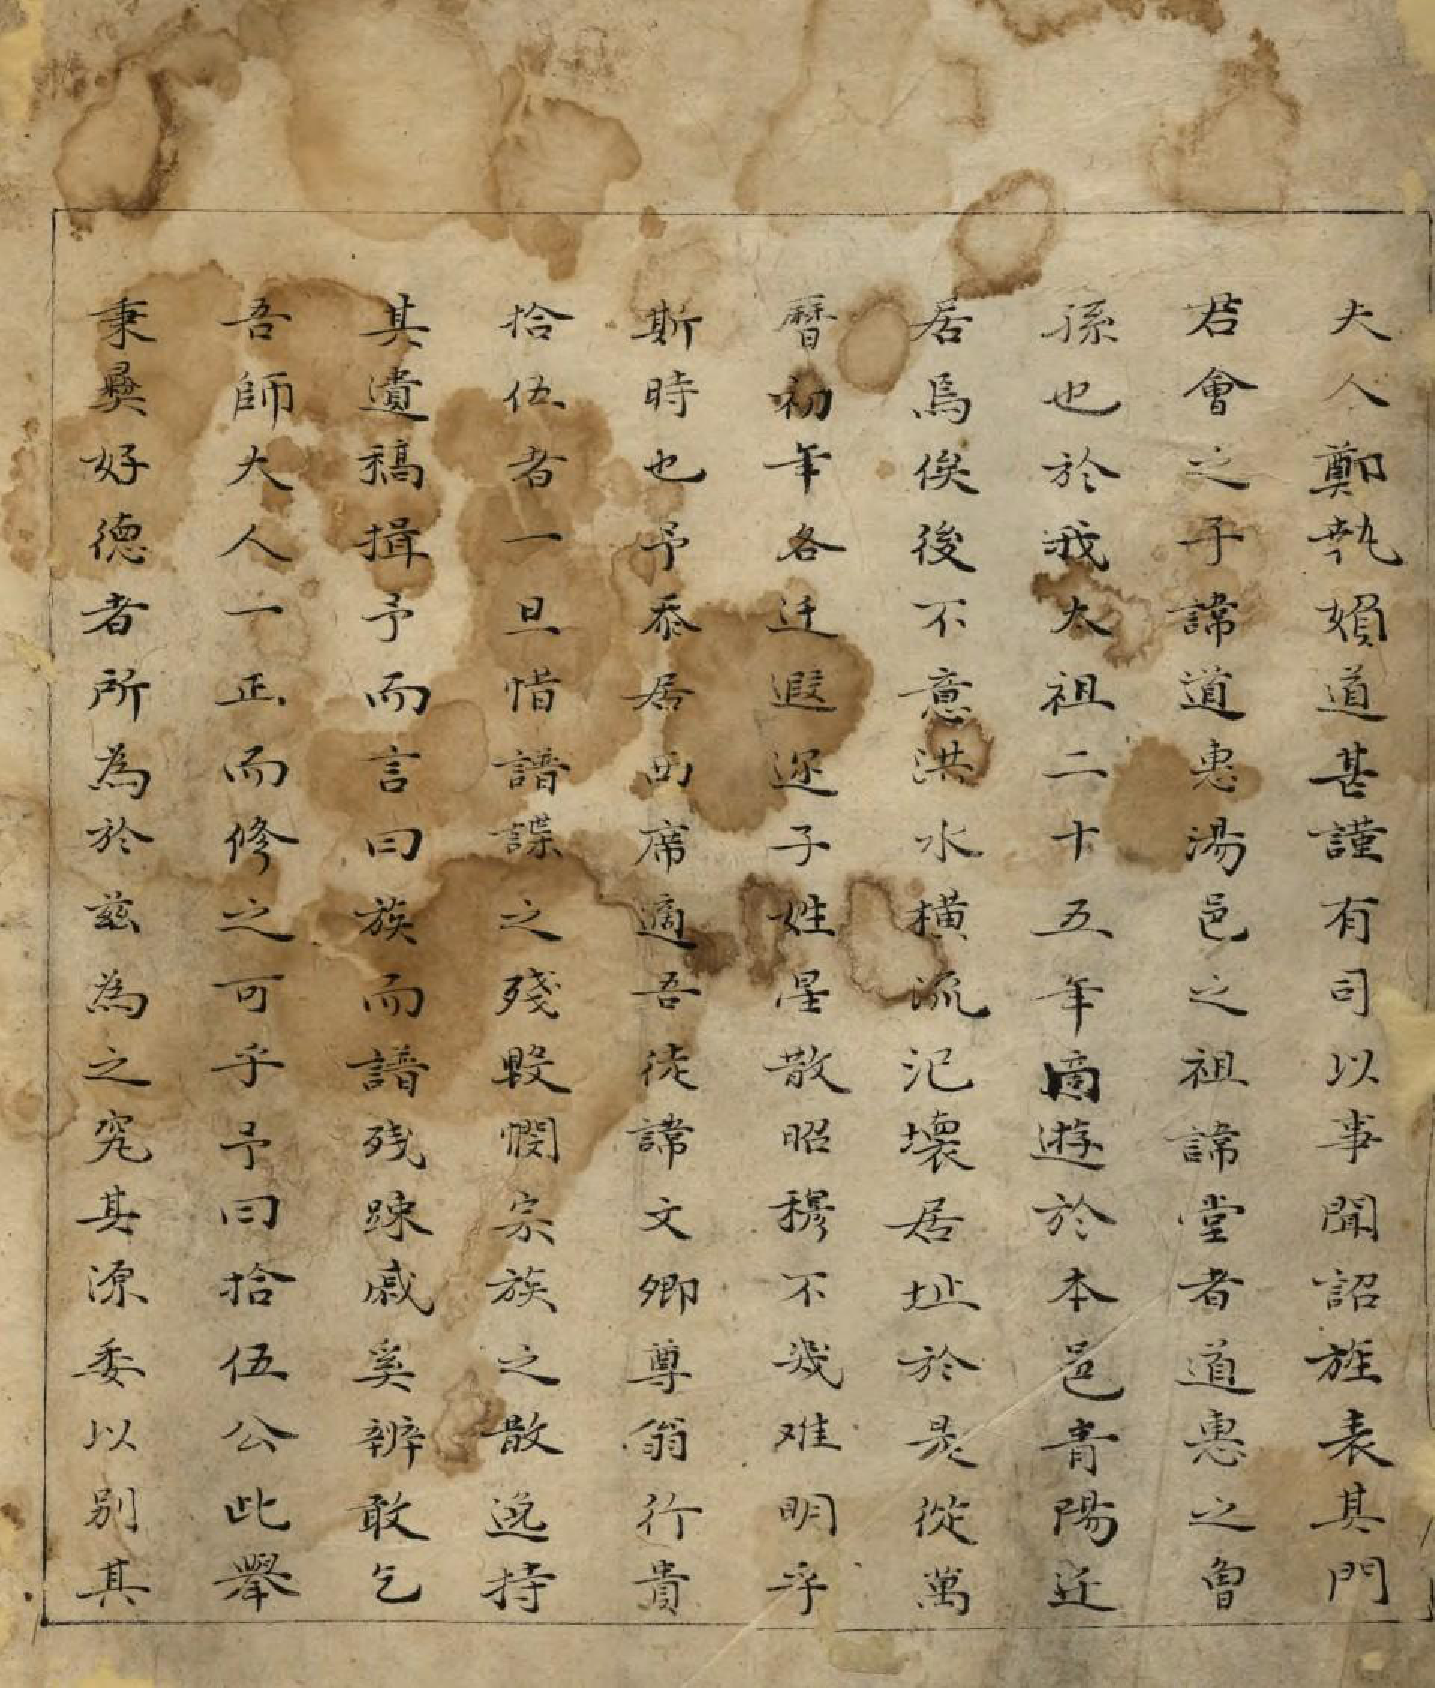 夫人鄭執嬪道甚謹有司以事聞詔旌表其門
若會之子諱道惠湯邑之祖諱堂者道惠之曾
孫也於我太祖二十五年啇遊於本邑青陽迁
居焉俟後不意洪水橫流汜壞居址於是從萬
曆初年各迁遐迩子姓星散昭穆不幾难明乎
斯時也予忝居西席適吾徒諱文卿尊翁行貴
拾伍者一旦惜譜諜之殘毀憫宗族之散逸持
其遺稿揖予而言曰族而譜残踈戚奚辨敢乞
吾師大人一正而修之可乎予曰拾伍公此舉
秉彝好德者所為於兹為之究其源委以别其